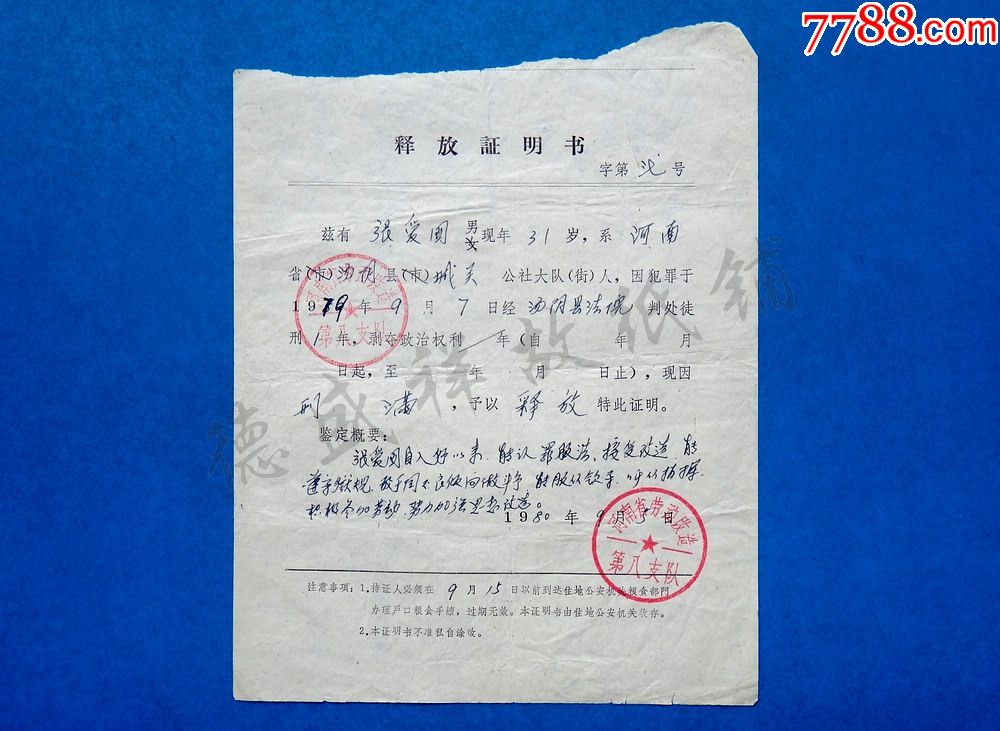 7788.com
释放証明书
字第 号
兹有 張爱国 男女 现年 31 岁，系 河南
省(市)汤阴县(市)城关 公社大队(街)人，因犯罪于
1979年 9 月 7 日经 汤阴县法院 判处徒
刑1年，剥夺政治权利 年(自 年 月
日起，至 年 月 日止)，现因
刑 满，予以 释放 特此证明。
鉴定概要：
張爱国自入 以来，能认罪服法，接受改造，能
遵守 规，敢于同不良倾向做斗争，能服从 ，听从指挥，
积极参加劳动，努力加强思想改造。
1980 年 9 月 5 日
河南省劳动改造
第八支队
河南省劳动改造
第八支队
注意事项：1.持证人必须在 9 月 15 日以前到达住地公安机关粮食部門
办理戶口粮食手續，过期无效。本证明书由住地公安机关收存。
2.本证明书不准私自涂改。
德盛祥故纸铺